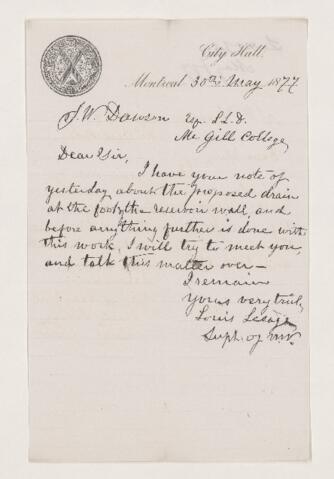 City Hall.
Montreal 30th May 1877
J. W. Dawson Esq. LL.D.
McGill College
Dear Sir,
I have your note of
yesterday about the proposed drain
at the foot of the reservoir wall, and
before anything further is done with
this work, I will try to meet you,
and talk this matter over—
I remain
Yours very truly,
Louis Lesage
Supt. of